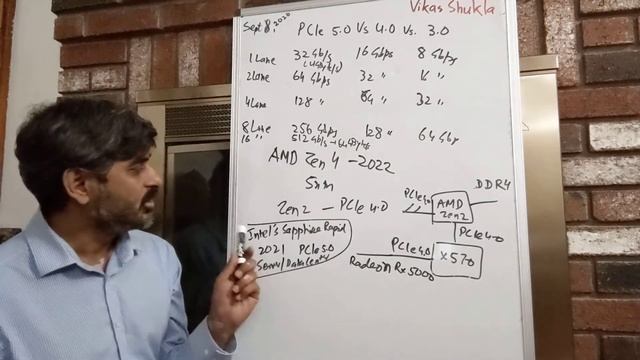 Vikas Shukla
Sept 8, 2020
PCIe 5.0 Vs 4.0 Vs. 3.0
1 Lane 32 Gb/s 16 Gbps 8 Gb/s
(4Gbyte/s)
2 Lane 64 Gbps 32 " 16 "
4 Lane 128 " 64 " 32 "
8 Lane 256 Gbps 128 " 64 Gbp
16 " 512 Gb/s → 64 GByte/s
AMD Zen 4 - 2022
5nm
Zen2 - PCIe 4.0
PCIe 4.0
AMD
Zen2
DDR4
PCIe 4.0
Intel's Sapphire Rapid
2021 PCIe 5.0
Server/Data Center
PCIe 4.0
Radeon Rx 5000
X570